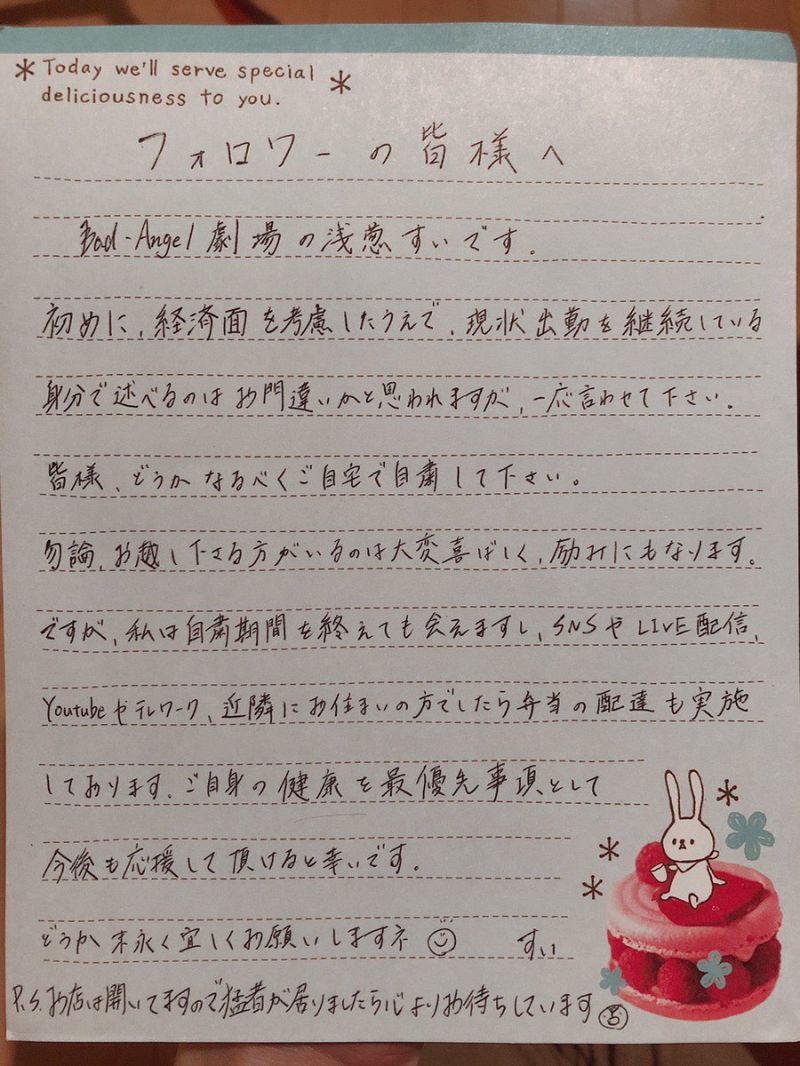 Today we'll serve special
deliciousness to you.
フォロワーの皆様へ
Bad-Angel劇場の浅葱すいです。
初めに、経済面を考慮したうえで、現状出勤を継続している
身分で述べるのはお門違いかと思われますが、一応言わせて下さい。
皆様、どうかなるべくご自宅で自粛して下さい。
勿論、お越し下さる方がいるのは大変喜ばしく、励みにもなります。
ですが、私は自粛期間を終えても会えますし、SNSやLIVE配信、
Youtubeやテレワーク、近隣にお住まいの方でしたら弁当の配達も実施
しております。ご自身の健康を最優先事項として
今後も応援して頂けると幸いです。
どうか末永く宜しくお願いしますネ すい
P.S.お店は開いてますので猛者が居りましたら心よりお待ちしています